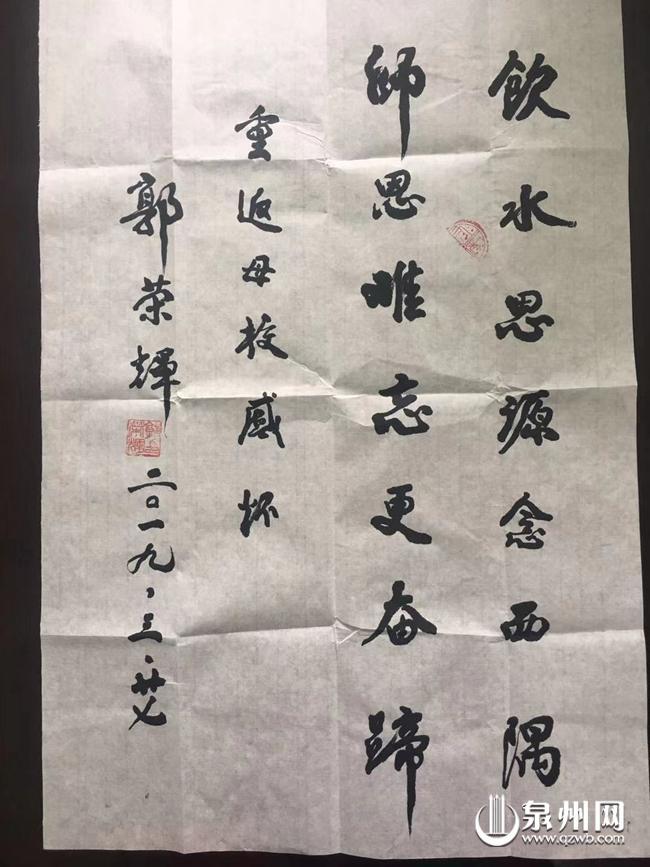 飲水思源念西隅
師恩难忘更奋蹄
重返母校感怀
郭荣輝
二〇一九、三、廿七
泉州网
www.qzwb.com